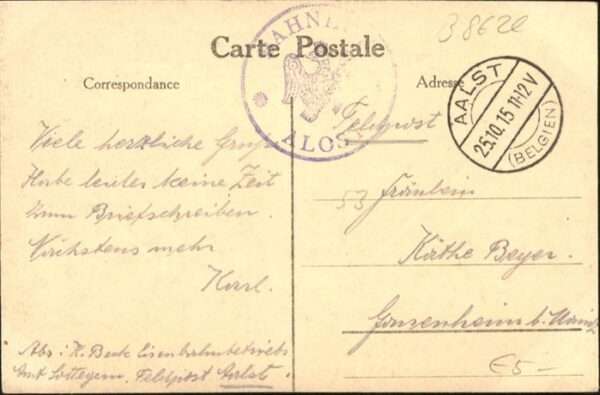 B8620
Carte Postale
BAHNH
ALOST
Correspondance
Adresse
AALST
25.10.15 11-12 V
(BELGIEN)
Feldpost
Viele herzliche Grüße
Habe leider keine Zeit
zum Briefschreiben.
Nächstens mehr
Karl.
Abs: K. Beck Eisenbahnbetriebs
Amt Sottegem, Feldpost Aalst
53 Fräulein
Käthe Beyer.
Gonsenheim b. Mainz
€5-